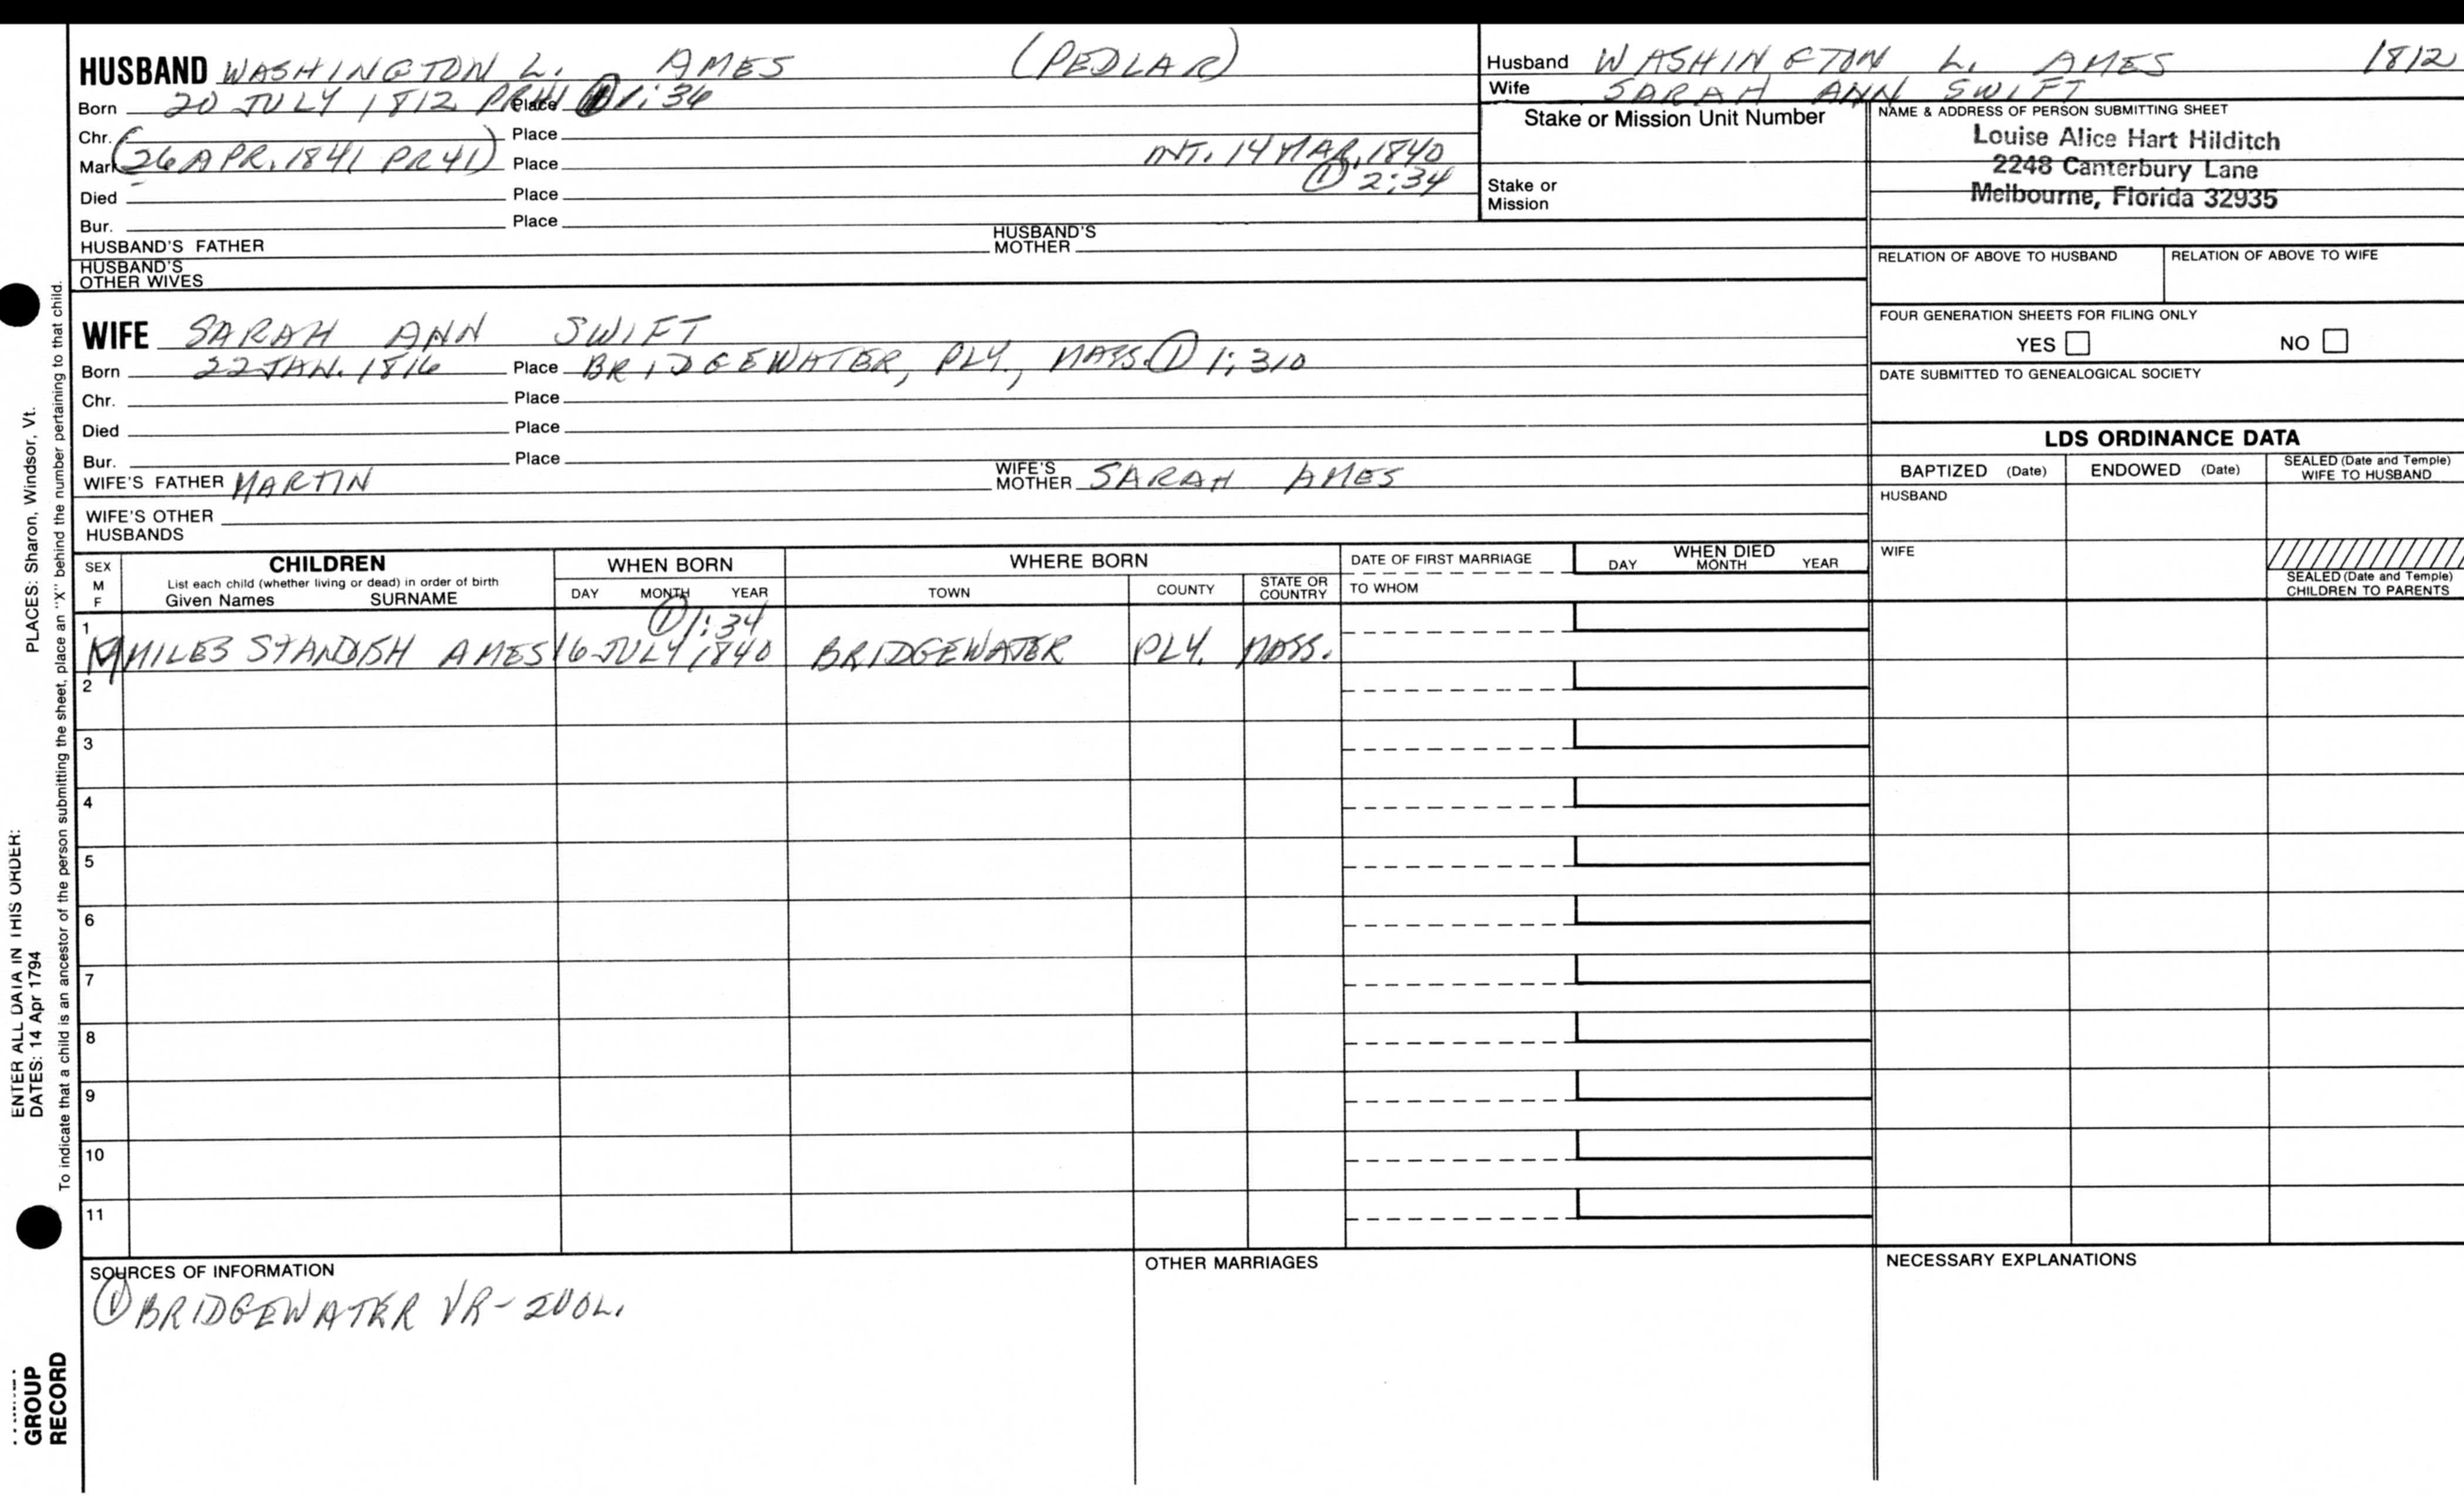 HUSBAND WASHINGTON L. AMES (PEDLAR)
Born 20 JULY 1812 Place ① 1:34
Chr. Place
Marr. (26 APR. 1841 PR41) Place INT. 14 MAR. 1840
① 2:34
Died Place
Bur. Place
HUSBAND'S FATHER HUSBAND'S MOTHER
HUSBAND'S OTHER WIVES
WIFE SARAH ANN SWIFT
Born 22 JAN. 1816 Place BRIDGEWATER, PLY., MASS. ① 1:310
Chr. Place
Died Place
Bur. Place
WIFE'S FATHER MARTIN WIFE'S MOTHER SARAH AMES
WIFE'S OTHER HUSBANDS
Husband WASHINGTON L. AMES 1812
Wife SARAH ANN SWIFT
Stake or Mission Unit Number
Stake or Mission
NAME & ADDRESS OF PERSON SUBMITTING SHEET
Louise Alice Hart Hilditch
2248 Canterbury Lane
Melbourne, Florida 32935
RELATION OF ABOVE TO HUSBAND RELATION OF ABOVE TO WIFE
FOUR GENERATION SHEETS FOR FILING ONLY
YES NO
DATE SUBMITTED TO GENEALOGICAL SOCIETY
LDS ORDINANCE DATA
BAPTIZED (Date) ENDOWED (Date) SEALED (Date and Temple) WIFE TO HUSBAND
HUSBAND
WIFE
SEALED (Date and Temple) CHILDREN TO PARENTS
SEX M F
CHILDREN
List each child (whether living or dead) in order of birth
Given Names SURNAME
WHEN BORN
DAY MONTH YEAR
WHERE BORN
TOWN COUNTY STATE OR COUNTRY
DATE OF FIRST MARRIAGE
TO WHOM
WHEN DIED
DAY MONTH YEAR
1 ① 1:34
M MILES STANDISH AMES 16 JULY 1840 BRIDGEWATER PLY. MASS.
2
3
4
5
6
7
8
9
10
11
SOURCES OF INFORMATION
① BRIDGEWATER VR-2VOL.
OTHER MARRIAGES
NECESSARY EXPLANATIONS
ENTER ALL DATA IN THIS ORDER:
DATES: 14 Apr 1794
PLACES: Sharon, Windsor, Vt.
To indicate that a child is an ancestor of the person submitting the sheet, place an "X" behind the number pertaining to that child.
GROUP
RECORD